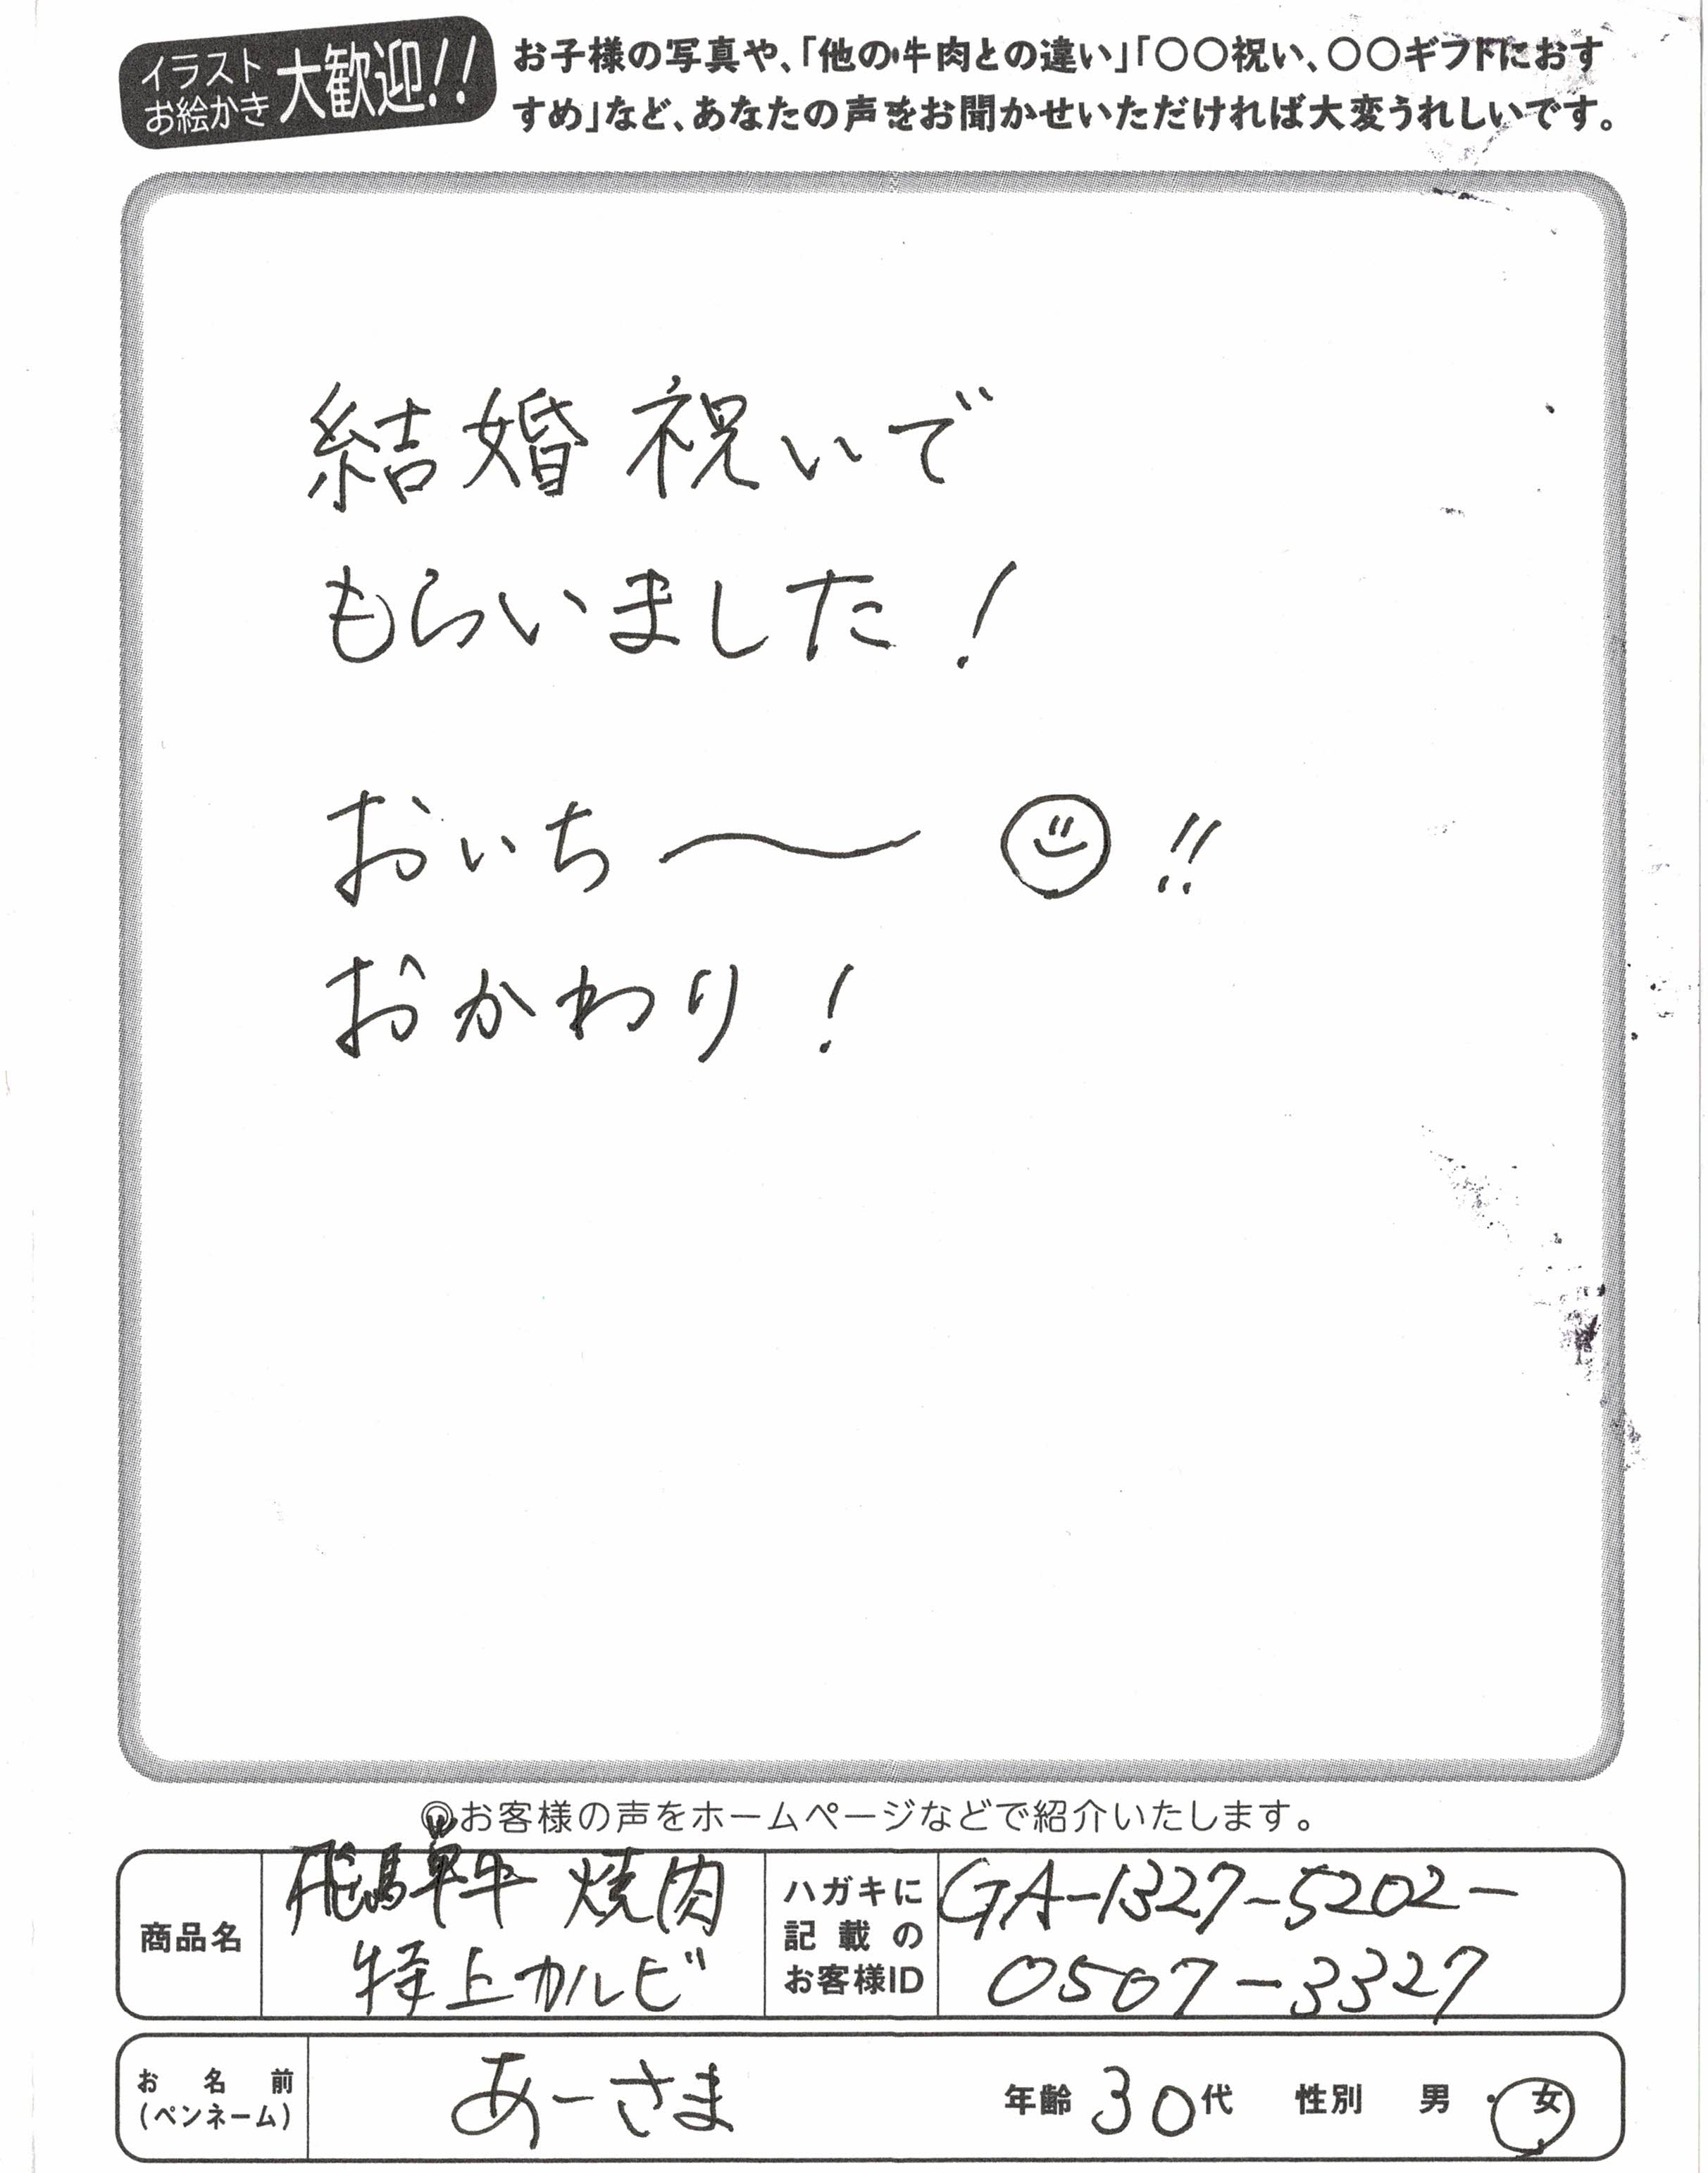 イラスト
お絵かき
大歓迎!!
お子様の写真や、「他の牛肉との違い」「〇〇祝い、〇〇ギフトにおす
すめ」など、あなたの声をお聞かせいただければ大変うれしいです。
結婚祝いで
もらいました!
おいち〜 !!
おかわり!
お客様の声をホームページなどで紹介いたします。
商品名
飛騨牛 焼肉
特上カルビ
ハガキに
記載の
お客様ID
GA-1327-5202-
0507-3327
お名前
(ペンネーム)
あーさま
年齢 30代 性別 男・女